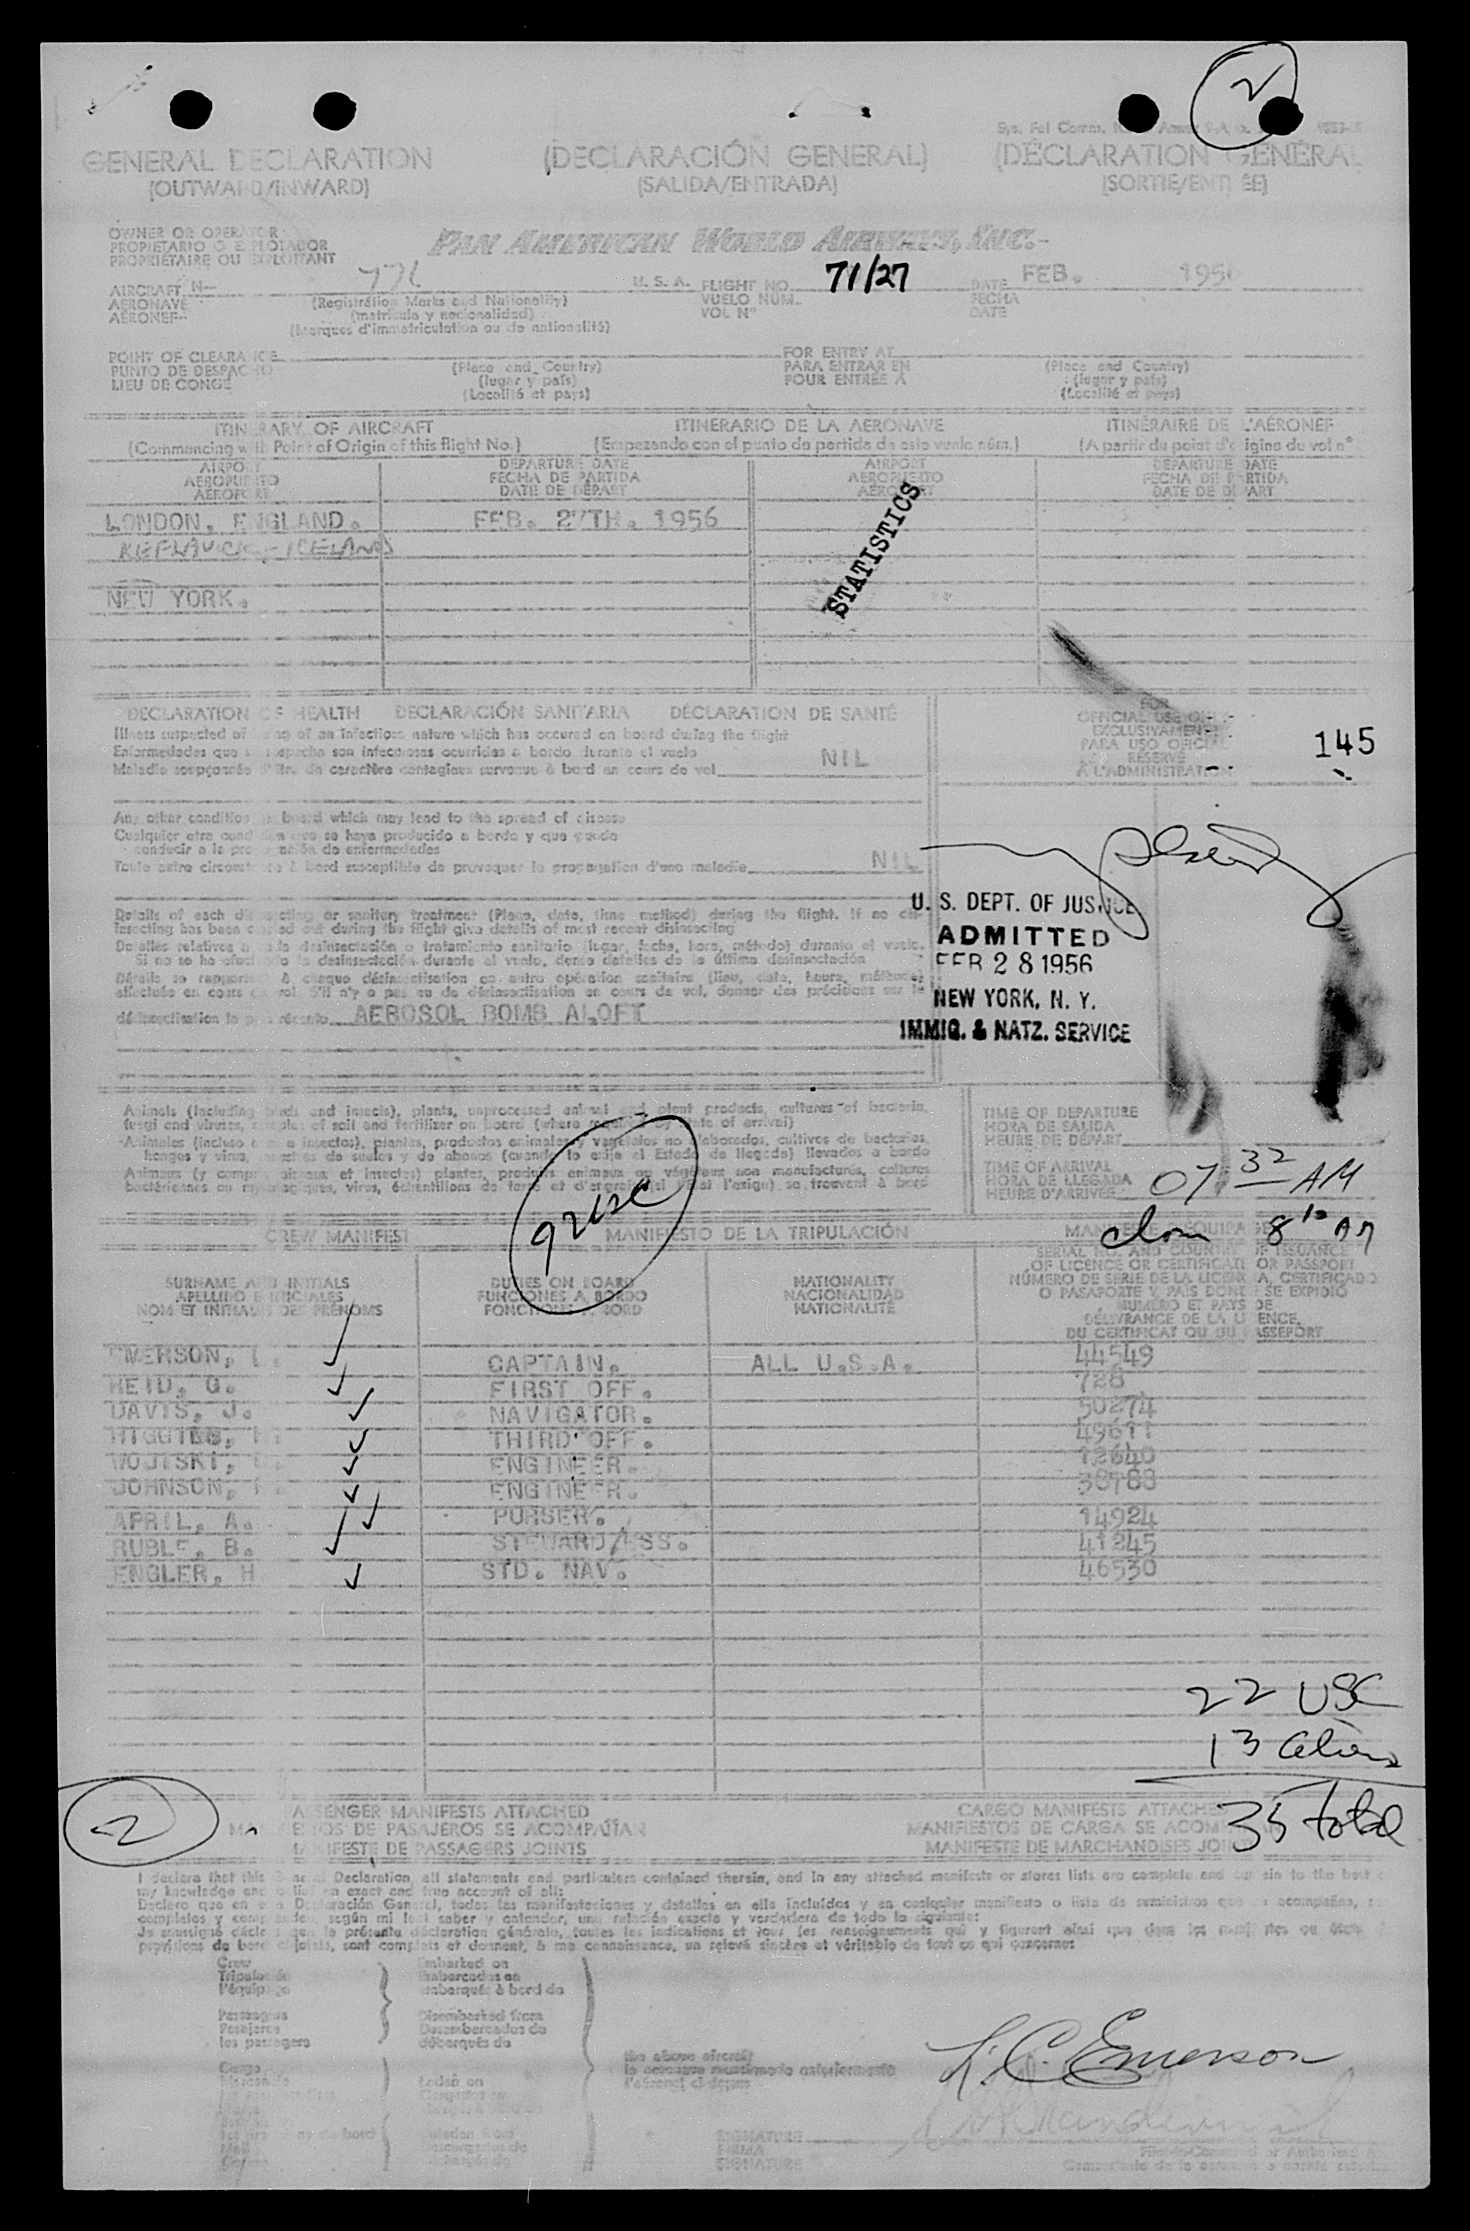 2
GENERAL DECLARATION (DECLARACIÓN GENERAL) (DÉCLARATION GÉNÉRAL
(OUTWARD/INWARD) (SALIDA/ENTRADA) (SORTIE/ENTRÉE)
OWNER OR OPERATOR
PROPIETARIO O EXPLOTADOR PAN AMERICAN WORLD AIRWAYS, INC.
PROPRIÉTAIRE OU EXPLOITANT
AIRCRAFT N- U. S. A. FLIGHT NO. 71/27 DATE FEB. 1956
AERONAVE (Registration Marks and Nationality) VUELO NÚM. FECHA
AÉRONEF (matrícula y nacionalidad) VOL Nº DATE
(Marques d'immatriculation ou de nationalité)
POINT OF CLEARANCE FOR ENTRY AT
PUNTO DE DESPACHO (Place and Country) PARA ENTRAR EN (Place and Country)
LIEU DE CONGÉ (lugar y país) POUR ENTRÉE À (lugar y país)
(Localité et pays) (Localité et pays)
ITINERARY OF AIRCRAFT ITINERARIO DE LA AERONAVE ITINÉRAIRE DE L'AÉRONEF
(Commencing with Point of Origin of this flight No.) (Empezando con el punto de partida de este vuelo núm.) (A partir du point d'origine du vol nº
AIRPORT DEPARTURE DATE AIRPORT DEPARTURE DATE
AEROPUERTO FECHA DE PARTIDA AEROPUERTO FECHA DE PARTIDA
AÉROPORT DATE DE DÉPART AÉROPORT DATE DE DÉPART
LONDON, ENGLAND. FEB. 27TH. 1956
KEFLAVICK - ICELAND
NEW YORK.
STATISTICS
DECLARATION OF HEALTH DECLARACIÓN SANITARIA DÉCLARATION DE SANTÉ
Illness suspected of being of an infectious nature which has occured on board during the flight
Enfermedades que se sospecha son infecciosas ocurridas a bordo durante el vuelo
Maladie soupçonnée d'être de caractère contagieux survenue à bord en cours de vol NIL
FOR
OFFICIAL USE ONLY
EXCLUSIVAMENTE
PARA USO OFICIAL
RÉSERVÉ
À L'ADMINISTRATION
145
Any other condition on board which may lead to the spread of disease
Cualquier otra condición que se haya producido a bordo y que pueda
conducir a la propagación de enfermedades
Toute autre circonstance à bord susceptible de provoquer la propagation d'une maladie NIL
Details of each disinsecting or sanitary treatment (Place, date, time method) during the flight. If no dis-
insecting has been carried out during the flight give details of most recent disinsecting
Detalles relativos a cada desinsectación o tratamiento sanitario (lugar, fecha, hora, método) durante el vuelo.
Si no se ha efectuado la desinsectación durante el vuelo, dense detalles de la última desinsectación
Détails se rapportant à chaque désinsectisation ou autre opération sanitaire (lieu, date, heure, méthode)
effectuée en cours de vol. S'il n'y a pas eu de désinsectisation en cours de vol, donner des précisions sur la
désinsectisation la plus récente AEROSOL BOMB ALOFT
U. S. DEPT. OF JUSTICE
ADMITTED
FEB 28 1956
NEW YORK, N. Y.
IMMIG. & NATZ. SERVICE
Animals (including birds and insects), plants, unprocessed animal and plant products, cultures of bacteria,
fungi and viruses, samples of soil and fertilizer on board (where required by State of arrival)
Animales (incluso aves e insectos), plantas, productos animales y vegetales no elaborados, cultivos de bacterias,
hongos y virus, muestras de suelos y de abonos (cuando lo exija el Estado de llegada) llevados a bordo
Animaux (y compris oiseaux et insectes) plantes, produits animaux ou végétaux non manufacturés, cultures
bactériennes ou mycologiques, virus, échantillons de terre et d'engrais (si l'Etat l'exige) se trouvant à bord
TIME OF DEPARTURE
HORA DE SALIDA
HEURE DE DÉPART
TIME OF ARRIVAL
HORA DE LLEGADA 07 32 AM
HEURE D'ARRIVÉE
8 10 AM
9 USC
CREW MANIFEST MANIFIESTO DE LA TRIPULACIÓN MANIFESTE D'ÉQUIPAGE
SURNAME AND INITIALS DUTIES ON BOARD NATIONALITY SERIAL NO. AND COUNTRY OF ISSUANCE
APELLIDO E INICIALES FUNCIONES A BORDO NACIONALIDAD OF LICENCE OR CERTIFICATE OR PASSPORT
NOM ET INITIALES DES PRÉNOMS FONCTIONS À BORD NATIONALITÉ NÚMERO DE SERIE DE LA LICENCIA, CERTIFICADO
O PASAPORTE Y PAÍS DONDE SE EXPIDIÓ
NUMÉRO ET PAYS DE
DÉLIVRANCE DE LA LICENCE,
DU CERTIFICAT OU DU PASSEPORT
EMERSON, CAPTAIN. ALL U.S.A. 44549
REID, G. FIRST OFF. 728
DAVIS, J. NAVIGATOR. 50274
HIGGINS, THIRD OFF. 49611
WOJTSKI, ENGINEER. 12640
JOHNSON, ENGINEER. 38788
APRIL, A. PURSER. 14924
RUBLE, B. STEWARD/ESS. 41245
ENGLER, H STD. NAV. 46530
22 USC
13 Aliens
35 total
2
PASSENGER MANIFESTS ATTACHED CARGO MANIFESTS ATTACHED
MANIFIESTOS DE PASAJEROS SE ACOMPAÑAN MANIFIESTOS DE CARGA SE ACOMPAÑAN
MANIFESTE DE PASSAGERS JOINTS MANIFESTE DE MARCHANDISES JOINTS
I declare that this General Declaration, all statements and particulars contained therein, and in any attached manifests or stores lists are complete and
my knowledge and belief an exact and true account of all:
Declaro que en esta Declaración General, todas las manifestaciones y detalles en ella incluidos y en cualquier manifiesto o lista de suministros que la acompañan,
completos y según mi leal saber y entender, una relación exacta y verdadera de todo lo siguiente:
Je soussigné déclare que la présente déclaration générale, toutes les indications et tous les renseignements qui y figurent ainsi que dans les
provisions de bord ci-joints, sont complets et donnent, à ma connaissance, un relevé sincère et véritable de tout ce qui concerne:
Crew Embarked on
Tripulación Embarcados en
l'équipage embarqués à bord de
Passengers Disembarked from
Pasajeros Desembarcados de
les passagers débarqués de
the above aircraft
la aeronave mencionada anteriormente
Cargo
Loaded on
L. C. Emerson
SIGNATURE
FIRMA
SIGNATURE